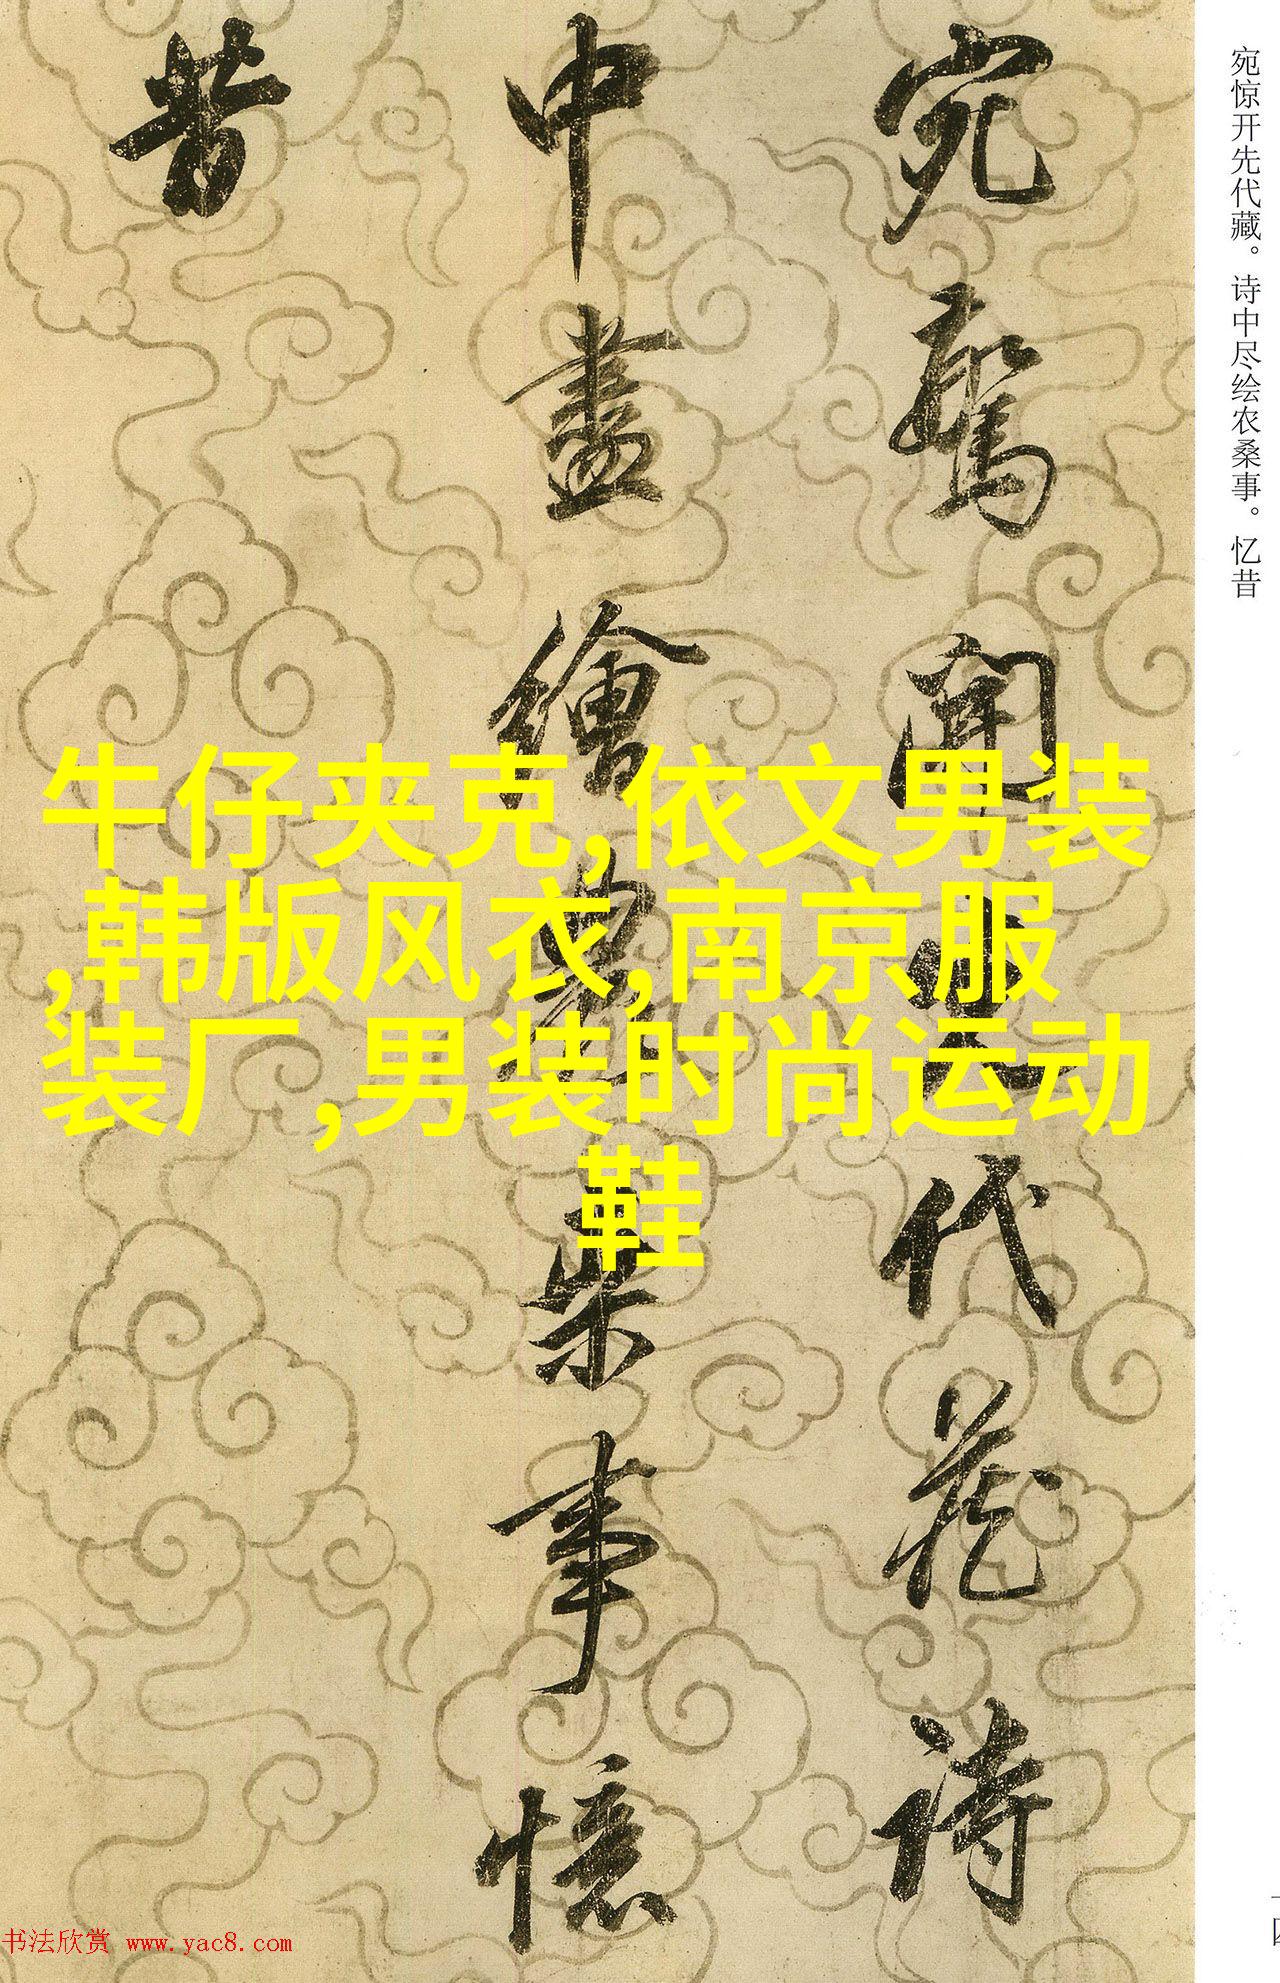 宛驚開先代藏詩
中盡繪農桑事憶
昔
宛惊开先代藏。诗中尽绘农桑事。忆昔
牛仔夹克,依文男装
,韩版风衣,南京服
装厂,男装时尚运动
鞋
书法欣赏 www.yac8.com